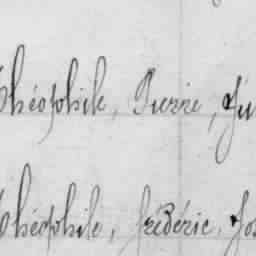 Théophile, Pierre, Ju
Théophile, Frédéric, Jos